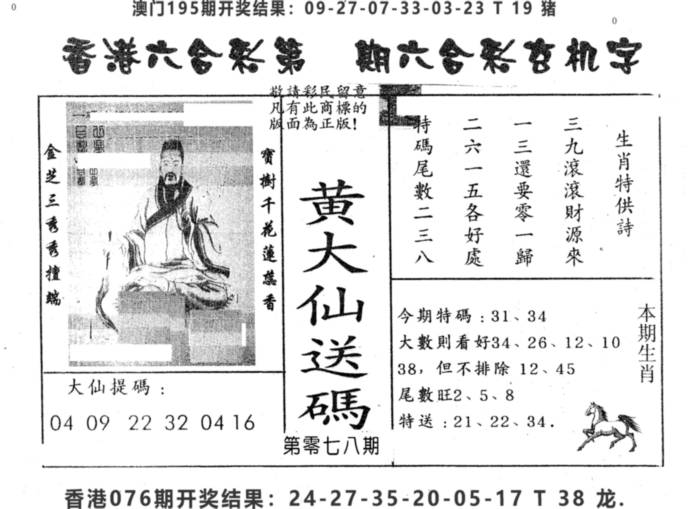 澳门195期开奖结果：09-27-07-33-03-23 T 19 猪
香港六合彩第 期六合彩玄机字
敬請彩民留意
凡有此商標的
版面為正版！
金芝三秀秀擅端
寶樹千花蓮蕊香
黃大仙送碼
第零七八期
大仙提碼：
04 09 22 32 04 16
生肖特供詩
三九滾滾財源來
一三還要零一歸
二六一五各好處
特碼尾數二三八
今期特碼：31、34
大數則看好34、26、12、10
38，但不排除 12、45
尾數旺2、5、8
特送：21、22、34.
本期生肖
香港076期开奖结果：24-27-35-20-05-17 T 38 龙.